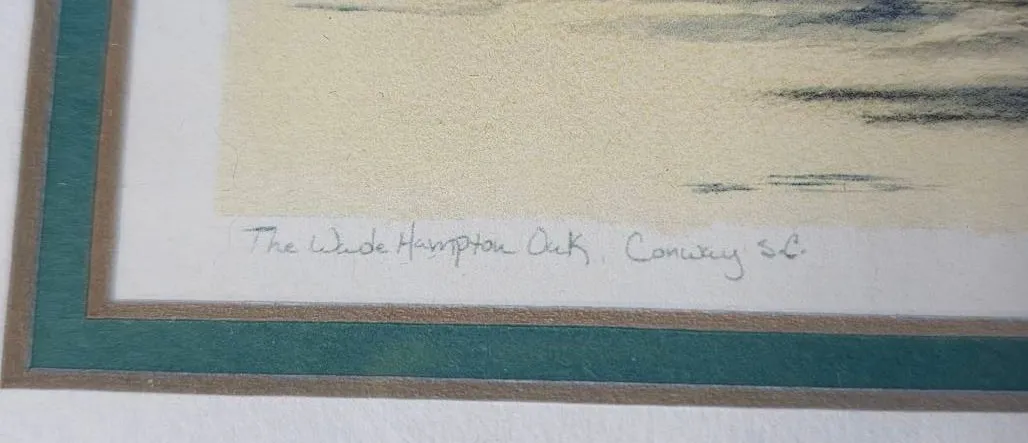 The Wade Hampton Oak, Conway S.C.